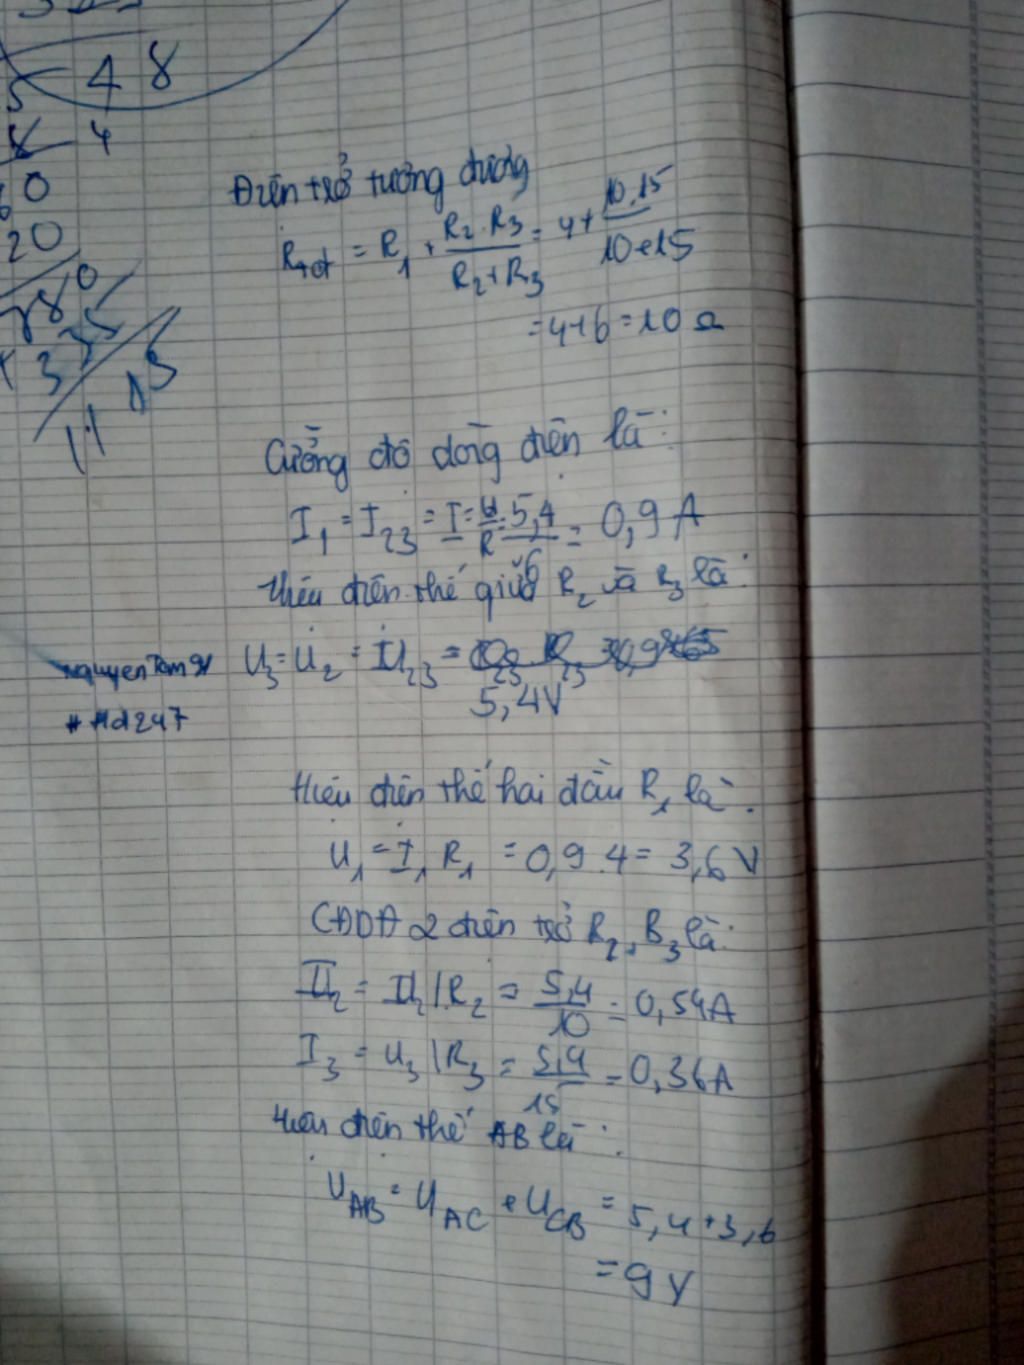 5 4 8
8 4
60
20
Điện trở tương đương
Rtđ = R1 + R2.R3 / R2+R3 = 4+ 10.15 / 10+15
=4+6=10 Ω
Cường độ dòng điện là:
I1 = I23 = I = U/R = 5,4/6 = 0,9 A
Hiệu điện thế giữa R2 và R3 là:
U3 = U2 = U23 =
5,4V
nguyenTam91
#Hd247
Hiệu điện thế hai đầu R1 là:
U1 = I1 R1 = 0,9.4 = 3,6 V
CĐDĐ 2 điện trở R2, R3 là:
I2 = U2/R2 = 5,4/10 = 0,54A
I3 = U3/R3 = 5,4/15 = 0,36A
Hiệu điện thế AB là:
UAB = UAC + UCB = 5,4+3,6
= 9V